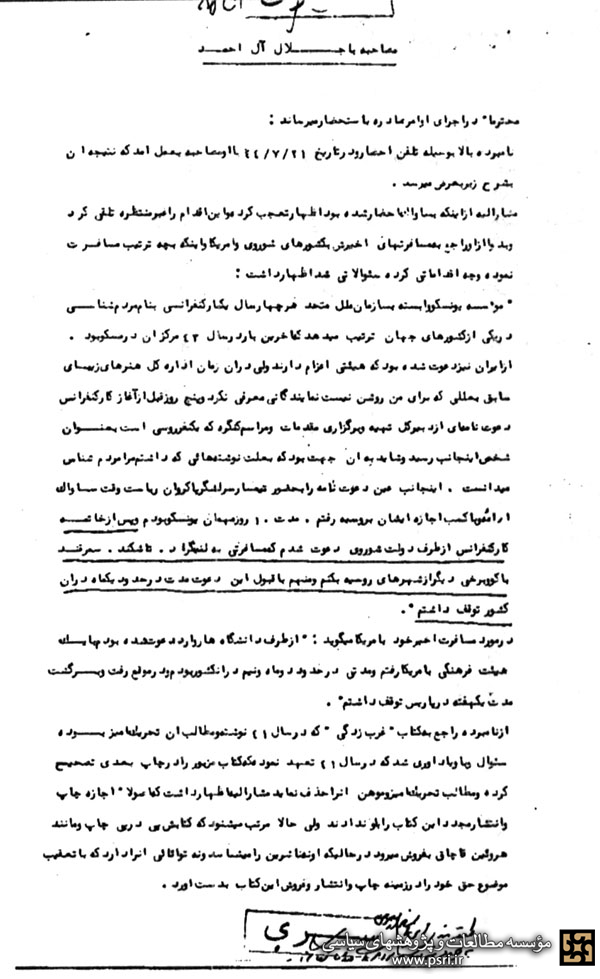 مصاحبه با جلال آل احمد
محترما" در اجرای اوامر صادره باستحضار میرساند :
نامبرده بالا بوسیله تلفن احضار و در تاریخ ۴۴/۷/۲۱ با او مصاحبه بعمل آمد که نتیجه آن
بشرح زیر بعرض میرسد .
مشارالیه از اینکه بساواک احضار شده بود اظهار تعجب کرده و این اقدام را غیر منتظره تلقی کرد
و بدوا از او راجع به مسافرتهای اخیرش بکشورهای شوروی و امریکا و اینکه بچه ترتیب مسافرت
نموده و چه اقداماتی کرده سئوالاتی شد اظهار داشت :
" موسسه یونسکو وابسته بسازمان ملل متحد هر چهار سال یکبار کنفرانسی بنام مردم شناسی
در یکی از کشورهای جهان ترتیب میدهد که آخرین بار در سال ۴۳ مرکز آن در مسکو بود .
از ایران نیز دعوت شده بود که هیئتی اعزام دارند ولی در آن زمان اداره کل هنرهای زیبای
سابق بعللی که برای من روشن نیست نمایندگانی معرفی نکرد و پنج روز قبل از آغاز کار کنفرانس
دعوت نامه‌ای از دبیر کل تهیه و برگزاری مقدمات و مراسم کنگره که یکنفر روسی است بعنوان
شخص اینجانب رسید و شاید به آن جهت بود که بعلت نوشته‌هائی که داشتم مرا مردم شناس
میدانست . اینجانب عین دعوت نامه را بحضور تیمسار سرلشگر پاکروان ریاست وقت ساواک
ارائه و با کسب اجازه ایشان بروسیه رفتم . مدت ۱۰ روز مهمان یونسکو بودم و پس از خاتمه
کار کنفرانس از طرف دولت شوروی دعوت شدم که مسافرتی به لنینگراد . تاشکند . سمرقند
باکو و برخی دیگر از شهرهای روسیه بکنم و منهم با قبول این دعوت مدت در حدود یکماه در آن
کشور توقف داشتم ".
در مورد مسافرت اخیر خود بامریکا میگوید : " از طرف دانشگاه هاروارد دعوت شده بودم با یک
هیئت فرهنگی بامریکا رفتم و مدتی در حدود دو ماه و نیم در آنکشور بودم و در موقع رفت و برگشت
مدت یکهفته در پاریس توقف داشتم ".
از نامبرده راجع به کتاب " غرب زدگی " که در سال ۴۱ نوشته و مطالب آن تحریک آمیز بوده
سئوال و باو یادآوری شد که در سال ۴۱ تعهد نموده که کتاب مزبور را در چاپ بعدی تصحیح
کرده و مطالب تحریک آمیز و موهن آنرا حذف نماید مشارالیه اظهار داشت که اصولا" اجازه چاپ
و انتشار مجدد این کتاب را باو ندادند ولی حالا مرتب میشنود که کتابش پی در پی چاپ و مانند
هروئین قاچاق بفروش میرود در حالیکه او نه ناشرین را میشناسد و نه توانائی آنرا دارد که با تعقیب
موضوع حق خود را در زمینه چاپ و انتشار و فروش این کتاب بدست آورد .
مؤسسه مطالعات و پژوهشهای سیاسی
www.psri.ir